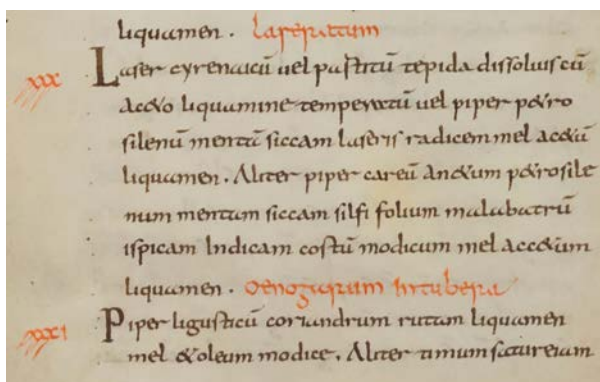 liquamen . Laseratum
xxx Laser cyrenaicū uel pastitū tepida dissoluis cū
ac&o liquamine temperatū uel piper p&ro
silenū mentā siccam laseris radicem mel ac&ū
liquamen . Aliter piper careū an&um p&rosile
num mentam siccam silfi folium malabatrū
ispicam Indicam costū modicum mel acc&um
liquamen . Oenogarum Intubera
xxxi Piper ligusticū coriandrum rutam liquamen
mel &oleum modice . Aliter timum satureiam